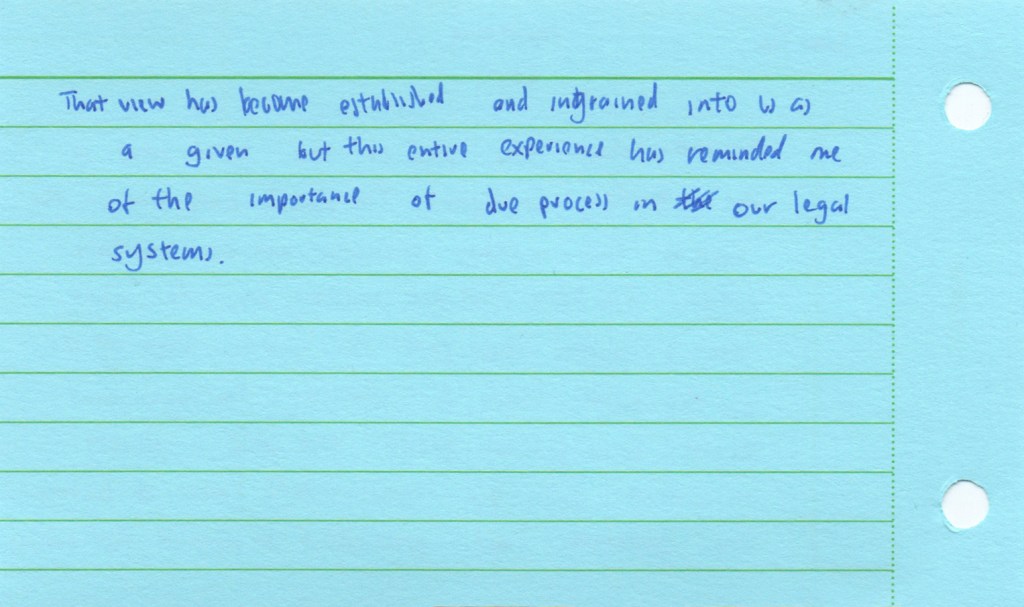 That view has become established and ingrained into us as
a given but this entire experience has reminded me
of the importance of due process in our legal
systems.